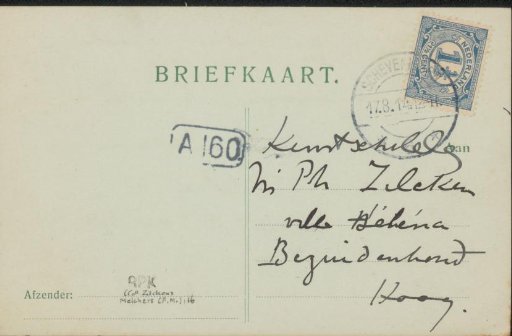 BRIEFKAART.
NEDERLAND
1½ CENT
17.8.14
A 160
Aan
Kunstschilder
Ph Zilcken
villa Hélèna
Bezuidenhout
Haag.
Afzender:
RPK
Coll Zilckens
Melchers (P.M.), 16